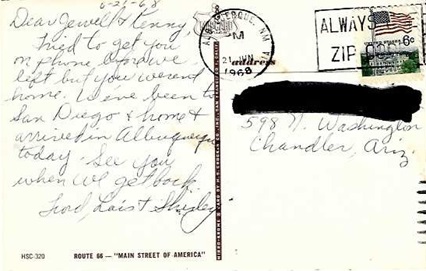 6-21-68
Dear Jewell & Kenny,
Tried to get you
on phone before we
left but you weren't
home. We've been to
San Diego & home &
arrived in Albuquerque
today - See you
when we get back.
Lois & Shirley
HSC-320
ROUTE 66 — "MAIN STREET OF AMERICA"
ALBUQUERQUE, NM
M
21 JUN
1968
ALWAYS
ZIP CODE
6c
Address
598 N. Washington
Chandler, Ariz.